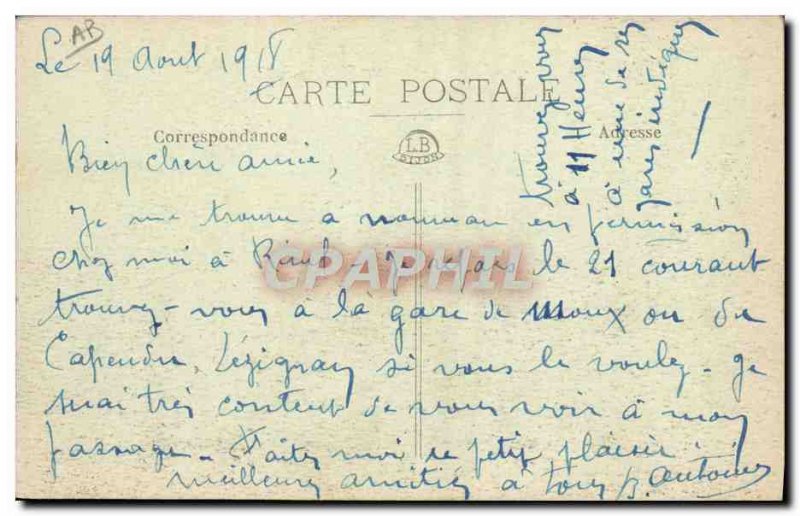 AR
Le 19 Aout 1918
CARTE POSTALE
Correspondance
Adresse
LB
DIJON
Bien chère amie,
Je me trouve à nouveau en permission
chez moi à . Je repars le 21 courant
trouvez-vous à la gare de Moux ou de
Capendu, Lézignan si vous le voulez. Je
serai très content de vous voir à mon
passage. Faites moi ce petit plaisir.
meilleures amitiés à tous B. Antoine
trouvez vous
à 11 Heures
à une de ces
gares indiquées
CPAPHIL